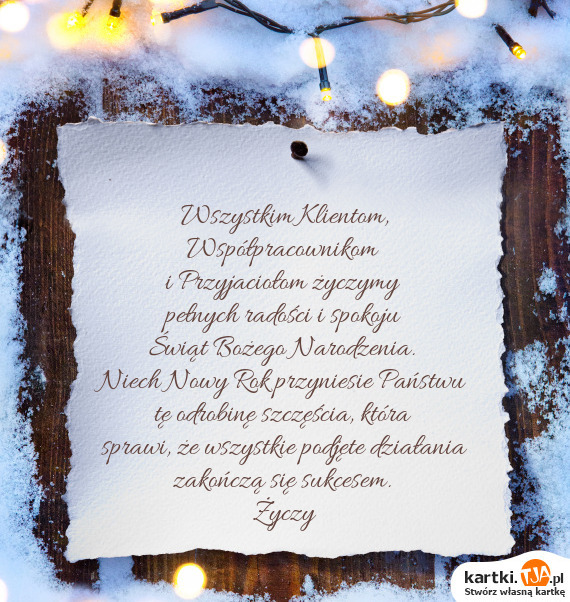 Wszystkim Klientom,
Współpracownikom
i Przyjaciołom życzymy
pełnych radości i spokoju
Świąt Bożego Narodzenia.
Niech Nowy Rok przyniesie Państwu
tę odrobinę szczęścia, która
sprawi, że wszystkie podjęte działania
zakończą się sukcesem.
Życzy
kartki.TJA.pl
Stwórz własną kartkę